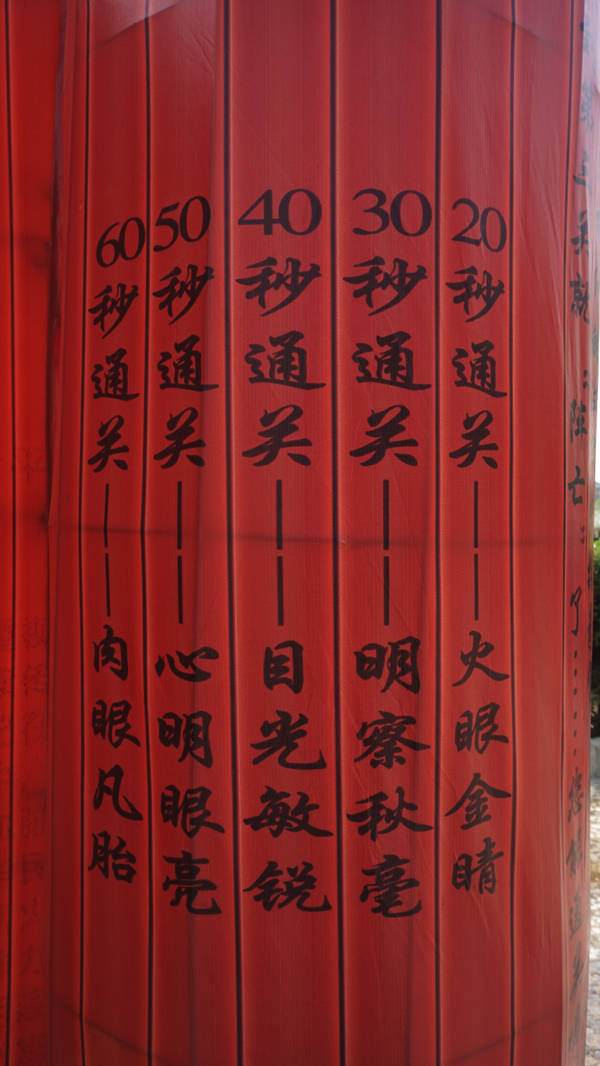 20秒通关——火眼金睛
30秒通关——明察秋毫
40秒通关——目光敏锐
50秒通关——心明眼亮
60秒通关——肉眼凡胎